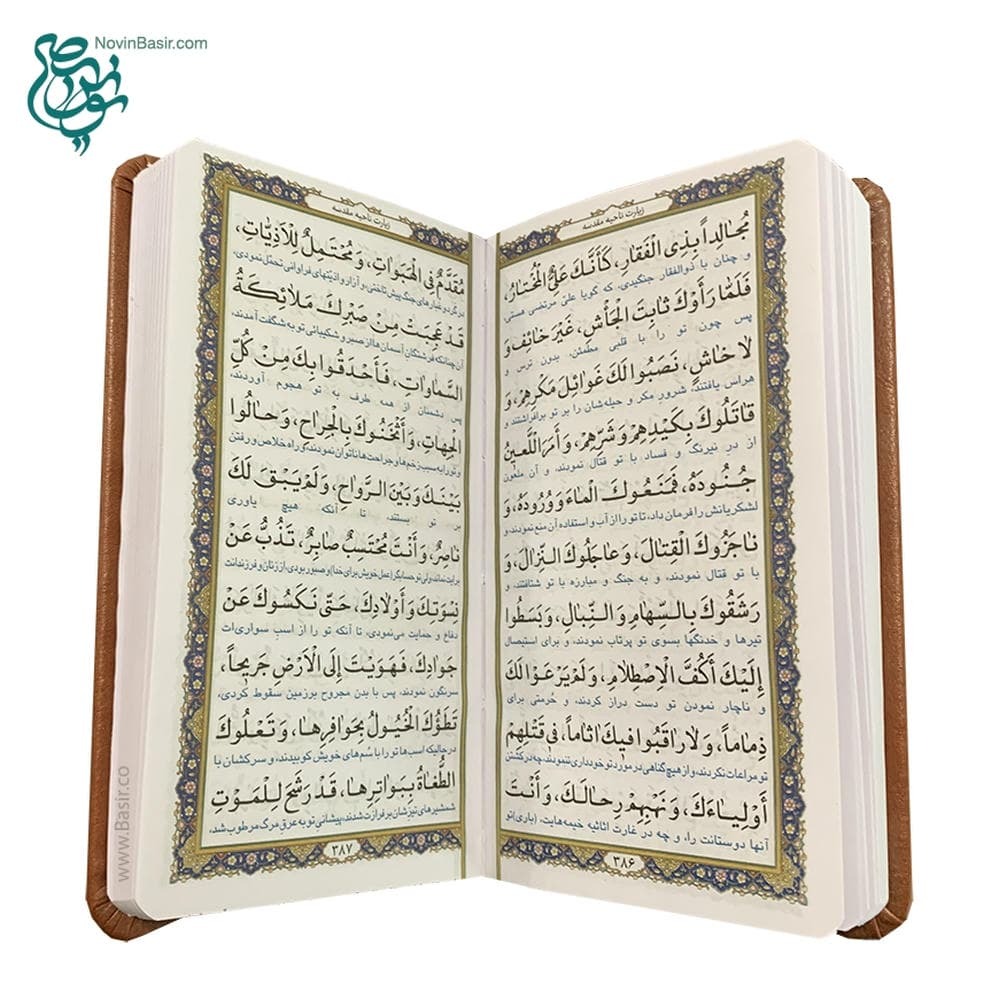 NovinBasir.com
زیارت ناحیه مقدسه
مُجٰالِداً بِذِی الْفَقٰارِ، کَأَنَّكَ عَلِیٌّ الْمُخْتٰارُ،
و چنان با ذوالفقار جنگیدی، که گویا علیّ مرتضی هستی
فَلَمّٰا رَأَوْكَ ثٰابِتَ الْجَأْشِ، غَیْرَ خٰائِفٍ وَ
پس چون تو را با قلبی مطمئن، بدون ترس و
لٰا خٰاشٍ، نَصَبُوا لَكَ غَوٰائِلَ مَکْرِهِمْ، وَ
هراس یافتند، شرورِ مکر و حیله‌شان را بر تو برافراشتند و
قٰاتَلُوكَ بِکَیْدِهِمْ وَ شَرِّهِمْ، وَ أَمَرَ اللَّعینُ
از در نیرنگ و فساد با تو قتال نمودند، و آن ملعون
جُنُودَهُ، فَمَنَعُوكَ الْمٰاءَ وَ وُرُودَهُ، وَ
لشکریانش را فرمان داد، تا تو را از آب و استفاده آن منع نمودند، و
نٰاجَزُوكَ الْقِتٰالَ، وَ عٰاجَلُوكَ النِّزٰالَ، وَ
با تو قتال نمودند، و به جنگ و مبارزه با تو شتافتند، و
رَشَقُوكَ بِالسِّهٰامِ وَ النِّبٰالِ، وَ بَسَطُوا
تیرها و خدنگها بسوی تو پرتاب نمودند، و برای استیصال
إِلَیْكَ أَکُفَّ الْاِصْطِلٰامِ، وَ لَمْ یَرْعَوْا لَكَ
و ناچار نمودن تو دست دراز کردند، و حُرمتی برای
ذِمٰاماً، وَ لٰا رٰاقَبُوا فیكَ اٰثٰاماً، فی قَتْلِهِمْ
تو مراعات نکردند، و از هیچ گناهی در مورد تو خودداری ننمودند، چه در کشتن
أَوْلِیٰاءَكَ، وَ نَهْبِهِمْ رِحٰالَكَ، وَ أَنْتَ
آنها دوستانت را، و چه در غارت اثاثیه خیمه‌هایت، (باری) تو
۳۸۶
زیارت ناحیه مقدسه
مُقَدَّمٌ فِی الْهَبَوٰاتِ، وَ مُحْتَمِلٌ لِلْأَذِیّٰاتِ،
در گرد و غبارهای جنگ پیش تاختی، و آزار و اذیّتهای فراوانی تحمّل نمودی،
قَدْ عَجِبَتْ مِنْ صَبْرِكَ مَلٰائِکَةُ
آن چنانکه فرشتگانِ آسمان‌ها از صبر و شکیبائی تو به شگفت آمدند،
السَّمٰاوٰاتِ، فَأَحْدَقُوا بِكَ مِنْ کُلِّ
پس دشمنان از همه طرف به تو هجوم آوردند،
الْجِهٰاتِ، وَ أَثْخَنُوكَ بِالْجِرٰاحِ، وَ حٰالُوا
و تو را به سبب زخم‌ها و جراحت‌ها ناتوان نمودند، و راه خلاص و رفتن
بَیْنَكَ وَ بَیْنَ الرَّوٰاحِ، وَ لَمْ یَبْقَ لَكَ
بر تو بستند، تا آنکه هیچ یاوری
نٰاصِرٌ، وَ أَنْتَ مُحْتَسِبٌ صٰابِرٌ، تَذُبُّ عَنْ
برایت نماند، ولی تو حسابگر (عمل خویش برای خدا) و صبور بودی، از زنان و فرزندانت
نِسْوَتِكَ وَ أَوْلٰادِكَ، حَتّٰی نَکَسُوكَ عَنْ
دفاع و حمایت می‌نمودی، تا آنکه تو را از اسبِ سواری‌ات
جَوٰادِكَ، فَهَوَیْتَ إِلَی الْأَرْضِ جَریحاً،
سرنگون نمودند، پس با بدن مجروح بر زمین سقوط کردی،
تَطَؤُكَ الْخُیُولُ بِحَوٰافِرِهٰا، وَ تَعْلُوكَ
در حالیکه اسب‌ها تو را با سُم‌های خویش کوبیدند، و سرکشان با
الطُّغٰاةُ بِبَوٰاتِرِهٰا، قَدْ رَشَحَ لِلْمَوْتِ
شمشیرهای تیزشان بر فرازت شدند، پیشانی تو به عرق مرگ مرطوب شد،
۳۸۷
www.Basir.co